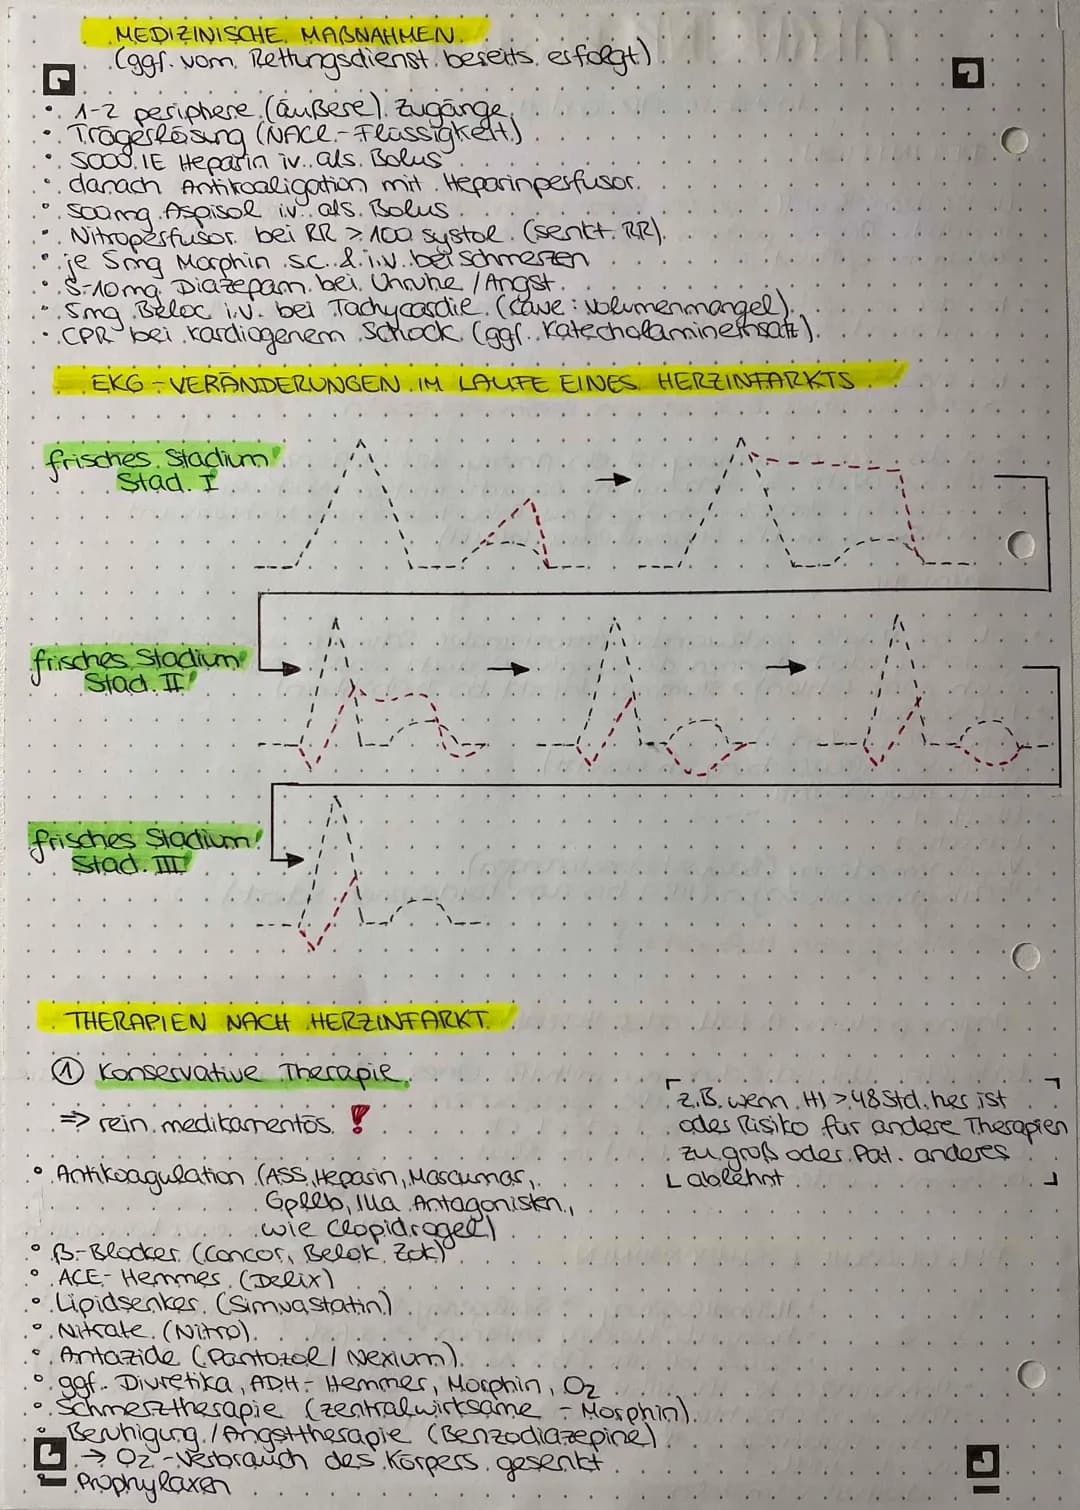 MEDIZINISCHE MAßNAHMEN
(ggf. vom Rettungsdienst bereits erfolgt)
• 1-2 periphere (äußere) Zugänge
• Trägerlösung (NACL-Flüssigkeit)
• 5000 IE Heparin iv. als Bolus
• danach Antikoaligation mit Heparinperfusor.
• 500mg Aspisol i.v. als Bolus
• Nitroperfusor bei RR > 100 systol. (senkt RR)
• je 5mg Morphin s.c. & i.v. bei Schmerzen
• 5-10mg Diazepam bei Unruhe / Angst
• 5mg Beloc i.v. bei Tachycardie (cave: Volumenmangel)
• CPR bei kardiogenem Schock (ggf. Katecholamineinsatz)
EKG-VERÄNDERUNGEN IM LAUFE EINES HERZINFARKTS
frisches Stadium
Stad. I
frisches Stadium
Stad. II
frisches Stadium
Stad. III
THERAPIEN NACH HERZINFARKT
① Konservative Therapie
⇒ rein medikamentös !
z.B. wenn HI > 48 Std. her ist
oder Risiko für andere Therapien
zu groß oder Pat. anderes
ablehnt
• Antikoagulation (ASS, Heparin, Marcumar,
GpIIb, IIIa Antagonisten,
wie Clopidrogel)
• β-Blocker (Concor, Belok Zok)
• ACE-Hemmer (Delix)
• Lipidsenker (Simvastatin)
• Nitrate (Nitro)
• Antazide (Pantozol / Nexium)
• ggf. Diuretika, ADH-Hemmer, Morphin, O2
• Schmerztherapie (zentralwirksame - Morphin)
• Beruhigung / Angsttherapie (Benzodiazepine)
→ O2-Verbrauch des Körpers gesenkt
• Prophylaxen